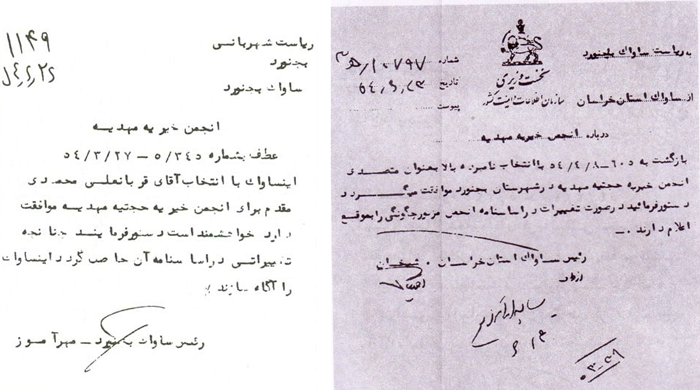 ۱۱۴۹
ریاست شهربانی
بجنورد
ساواک بجنورد
انجمن خیریه مهدیه
عطف بشماره ۵/۳۴۵ – ۵۴/۳/۲۷
اینساواک با انتخاب آقای قربانعلی محمدی
مقدم برای انجمن خیریه حجتیه مهدیه موافقت
دارد خواهشمند است دستور فرمایند چنانچه
تغییراتی در اساسنامه آن حاصل گردد اینساواک
را آگاه سازند
رئیس ساواک بجنورد – مهرآموز
نخست وزیری
سازمان اطلاعات و امنیت کشور
به ریاست ساواک بجنورد
از ساواک استان خراسان
شماره ۱۰۷۹۷/ه۳
تاریخ
پیوست
درباره انجمن خیریه مهدیه
بازگشت به ۶۰۵–۵۴/۴/۸ با انتخاب نامبرده بالا بعنوان متصدی
انجمن خیریه حجتیه مهدیه در شهرستان بجنورد موافقت میگردد
دستور فرمائید در صورت تغییرات در اساسنامه انجمن مزبور چگونگی را بموقع
اعلام دارند
رئیس ساواک استان خراسان . شیخان